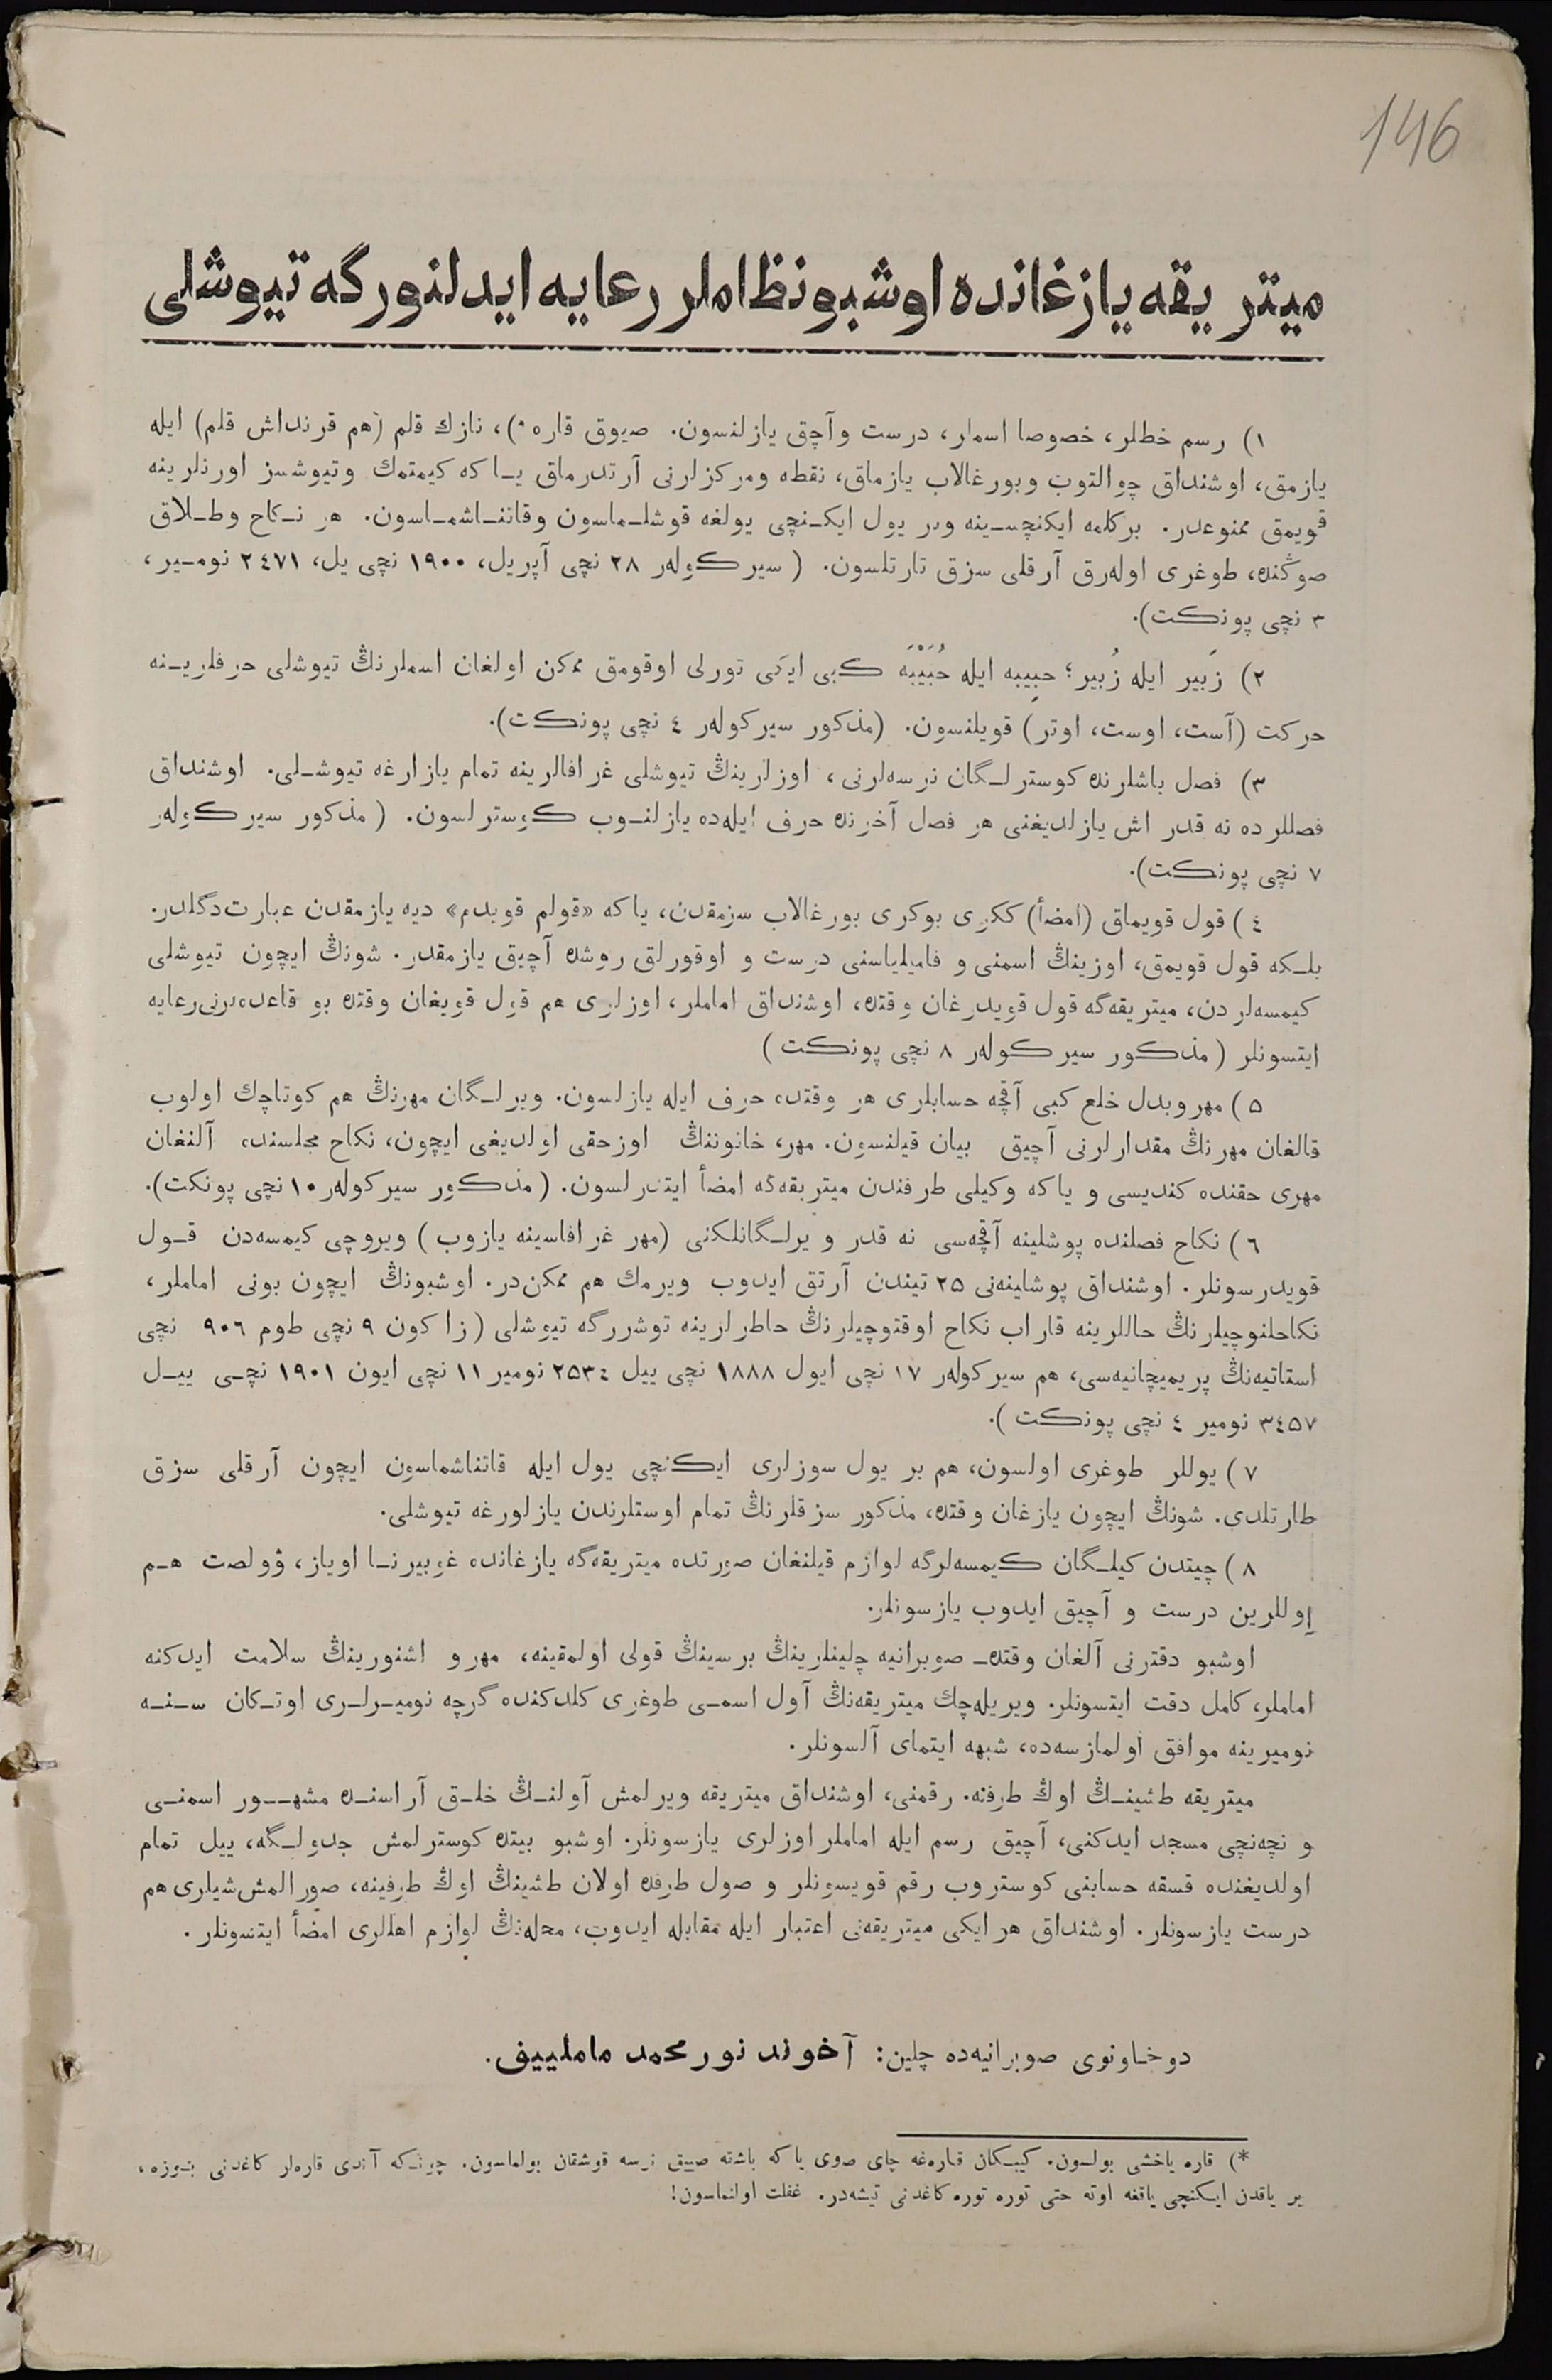 146
ميتريقه يازغانده اوشبو نظاملر رعايه ايدلنورگه تيوشلى
١) رسم خطلر، خصوصا اسملر، درست وآچق يازلنسون. صيوق قاره *)، نازك قلم (هم قرنداش قلم) ايله
يازمق، اوشنداق چوالتوب وبورغالاب يازماق، نقطه ومركزلرنى آرتدرماق يـا كه كيمتمك وتيوشسز اورنلرينه
قويمق ممنوعدر. بركلمه ايكنچـسـينه وبر يول ايكـنچى يولغه قوشلـماسون وقاتنـاشمـاسون. هر نـكاح وطـلاق
صوڭنده، طوغرى اولەرق آرقلى سزق تارتلسون. (سيركولەر ٢٨ نچى آپريل، ١٩٠٠ نچى يل، ٢٤٧١ نومـير،
٣ نچى پونكت).
٢) زَبير ايله زُبير؛ حبِيبه ايله حُبَيْبَه كبى ايكى تورلى اوقومق ممكن اولغان اسملرنڭ تيوشلى حرفلريـنه
حركت (آست، اوست، اوتر) قويلنسون. (مذكور سيركولەر ٤ نچى پونكت).
٣) فصل باشلرنده كوسترلـگان نرسەلرنى، اوزلرينڭ تيوشلى غرافالرينه تمام يازارغه تيوشـلى. اوشنداق
فصللرده نه قدر اش يازلديغنى هر فصل آخرنده حرف ايلەده يازلنـوب كوسترلسون. (مذكور سيركولەر
٧ نچى پونكت).
٤) قول قويماق (امضأ) ككرى بوكرى بورغالاب سزمقدن، ياكه «قولم قويدم» ديه يازمقدن عبارت دگلدر.
بلـكه قول قويمق، اوزينڭ اسمنى و فاميلياسنى درست و اوقورلق روشده آچيق يازمقدر. شونڭ ايچون تيوشلى
كيمسەلردن، ميتريقەگه قول قويدرغان وقتده، اوشنداق اماملر، اوزلرى هم قول قويغان وقتده بو قاعدەلرنى رعايه
ايتسونلر (مذكور سيركولەر ٨ نچى پونكت)
٥) مهر وبدل خلع كبى آقچه حسابلرى هر وقتده حرف ايله يازلسون. ويرلـگان مهرنڭ هم كوتاچك اولوب
قالغان مهرنڭ مقدارلرنى آچيق بيان قيلنسون. مهر، خاتوننڭ اوزحقى اولديغى ايچون، نكاح مجلسنده آلنغان
مهرى حقنده كنديسى و ياكه وكيلى طرفندن ميتريقەگه امضأ ايتدرلسون. (مذكور سيركولەر ١٠ نچى پونكت).
٦) نكاح فصلنده پوشلينه آقچەسى نه قدر ويرلـگانلكنى (مهر غرافاسينه يازوب) ويروچى كيمسەدن قـول
قويدرسونلر. اوشنداق پوشلينەنى ٢٥ تيندن آرتق ايدوب ويرمك هم ممكن در. اوشبونڭ ايچون بونى اماملر،
نكاحلنوچيلرنڭ حاللرينه قاراب نكاح اوقتوچيلرنڭ خاطرلرينه توشررگه تيوشلى (زاكون ٩ نچى طوم ٩٠٦ نچى
استاتيەنڭ پريميچانيەسى، هم سيركولەر ١٧ نچى ايول ١٨٨٨ نچى ييل ٢٥٣٤ نومير ١١ نچى ايون ١٩٠١ نچـى ييـل
٣٤٥٧ نومير ٤ نچى پونكت).
٧) يوللر طوغرى اولسون، هم بر يول سوزلرى ايكنچى يول ايله قاتناشماسون ايچون آرقلى سزق
طارتلدى. شونڭ ايچون يازغان وقتده، مذكور سزقلرنڭ تمام اوستلرندن يازلورغه تيوشلى.
٨) چيتدن كيلـگان كيمسەلرگه لوازم قيلنغان صورتده ميتريقەگه يازغانده غوبيرنـا اوياز، ۋولصت هـم
اوللرين درست و آچيق ايدوب يازسونلر.
اوشبو دفترنى آلغان وقتده صوبرانيه چلينلرينڭ برسينڭ قولى اولمقينه، مهر و اشنورينڭ سلامت ايدكنه
اماملر، كامل دقت ايتسونلر. ويريلەچك ميتريقەنڭ آول اسمـى طوغرى كلدكنده گرچه نوميـرلـرى اوتـكان سـنـه
نوميرينه موافق اولمازسەده، شبهه ايتماى آلسونلر.
ميتريقه طشينـڭ اوڭ طرفنه رقمنى، اوشنداق ميتريقه ويرلمش آولنـڭ خلـق آراسنـده مشهـور اسمنـى
و نچەنچى مسجد ايدكنى، آچيق رسم ايله اماملر اوزلرى يازسونلر. اوشبو بيتده كوسترلمش جدولـگه، ييل تمام
اولديغنده قسقه حسابنى كوستروب رقم قويسونلر و صول طرفده اولان طشينڭ اوڭ طرفينه، صورالمش شيلرى هم
درست يازسونلر. اوشنداق هر ايكى ميتريقەنى اعتبار ايله مقابله ايدوب، محلەنڭ لوازم اهللرى امضأ ايتسونلر.
دوخاونوى صوبرانيەده چلين: آخوند نورمحمد ماملييف.
*) قاره ياخشى بولسون. كيبـكان قارەغه چاى صوى ياكه باشته صييق نرسه قوشقان بولماسون. چونكه آندى قارەلر كاغدنى بوزه،
بر ياقدن ايكنچى ياقغه اوته حتى توره توره كاغدنى تيشەدر. غفلت اولنماسون!